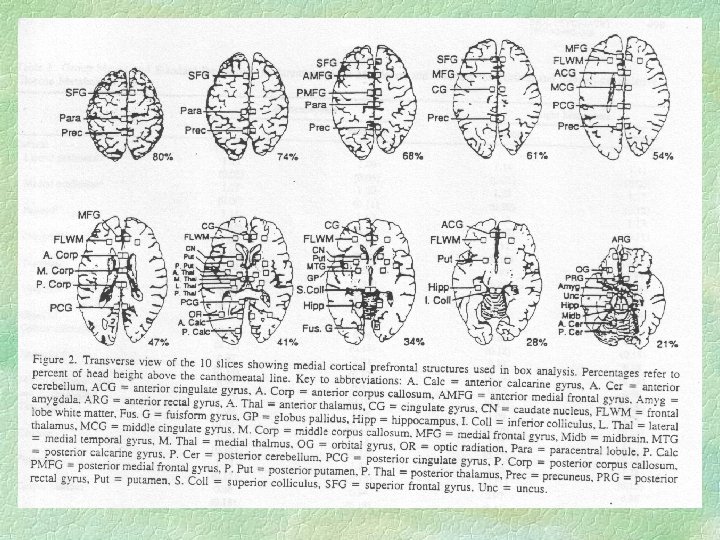 SFG
Para
Prec
80%
SFG
Para
Prec
74%
SFG
AMFG
PMFG
Para
Prec
68%
SFG
MFG
CG
Prec
61%
MFG
FLWM
ACG
MCG
PCG
Prec
54%
MFG
FLWM
A. Corp
M. Corp
P. Corp
PCG
47%
CG
FLWM
CN
Put
P. Put
A. Thal
M. Thal
L. Thal
P. Thal
PCG
OR
A. Calc
P. Calc
41%
CG
FLWM
CN
Put
MTG
GP
S.Coll
Hipp
Fus. G
34%
ACG
FLWM
Put
Hipp
I. Coll
28%
ARG
OG
PRG
Amyg
Unc
Hipp
Midb
A. Cer
P. Cer
21%
Figure 2. Transverse view of the 10 slices showing medial cortical prefrontal structures used in box analysis. Percentages refer to
percent of head height above the canthomeatal line. Key to abbreviations: A. Calc = anterior calcarine gyrus, A. Cer = anterior
cerebellum, ACG = anterior cingulate gyrus, A. Corp = anterior corpus callosum, AMFG = anterior medial frontal gyrus, Amyg =
amygdala, ARG = anterior rectal gyrus, A. Thal = anterior thalamus, CG = cingulate gyrus, CN = caudate nucleus, FLWM = frontal
lobe white matter, Fus. G = fuisform gyrus, GP = globus pallidus, Hipp = hippocampus, I. Coll = inferior colliculus, L. Thal = lateral
thalamus, MCG = middle cingulate gyrus, M. Corp = middle corpus callosum, MFG = medial frontal gyrus, Midb = midbrain, MTG
= medial temporal gyrus, M. Thal = medial thalmus, OG = orbital gyrus, OR = optic radiation, Para = paracentral lobule, P. Calc
= posterior calcarine gyrus, P. Cer = posterior cerebellum, PCG = posterior cingulate gyrus, P. Corp = posterior corpus callosum,
PMFG = posterior medial frontal gyrus, P. Put = posterior putamen, P. Thal = posterior thalamus, Prec = precuneus, PRG = posterior
rectal gyrus, Put = putamen, S. Coll = superior colliculus, SFG = superior frontal gyrus, Unc = uncus.